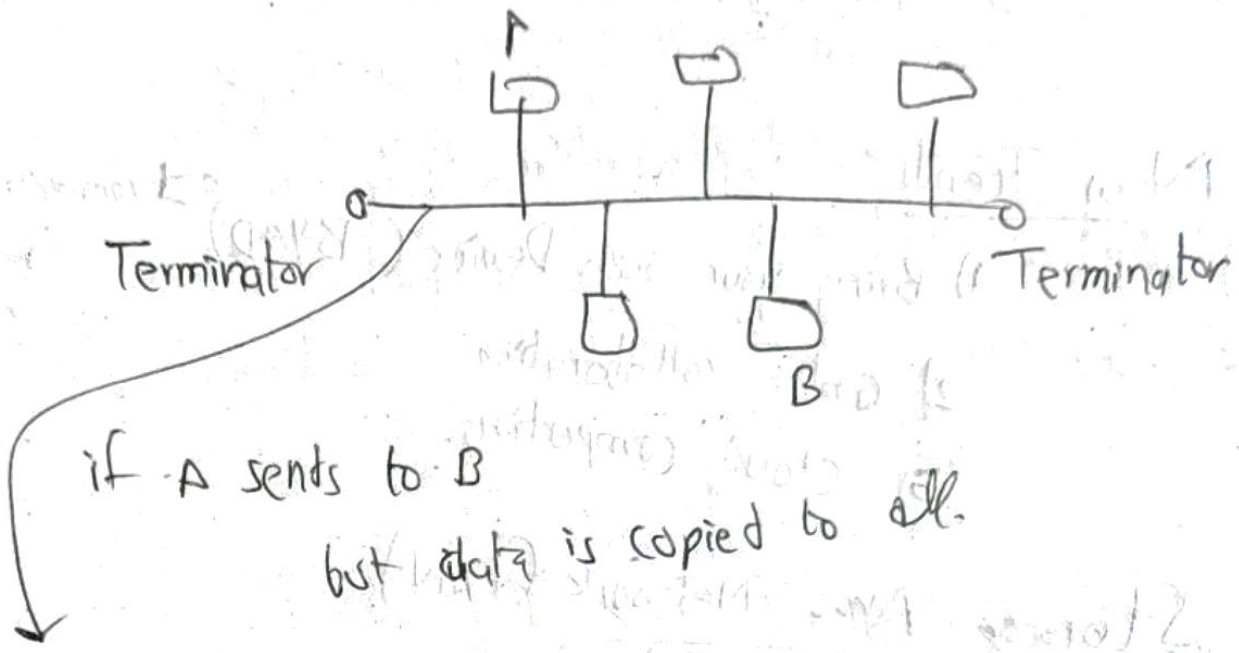 A
Terminator
Terminator
B
if A sents to B
but data is copied to all.